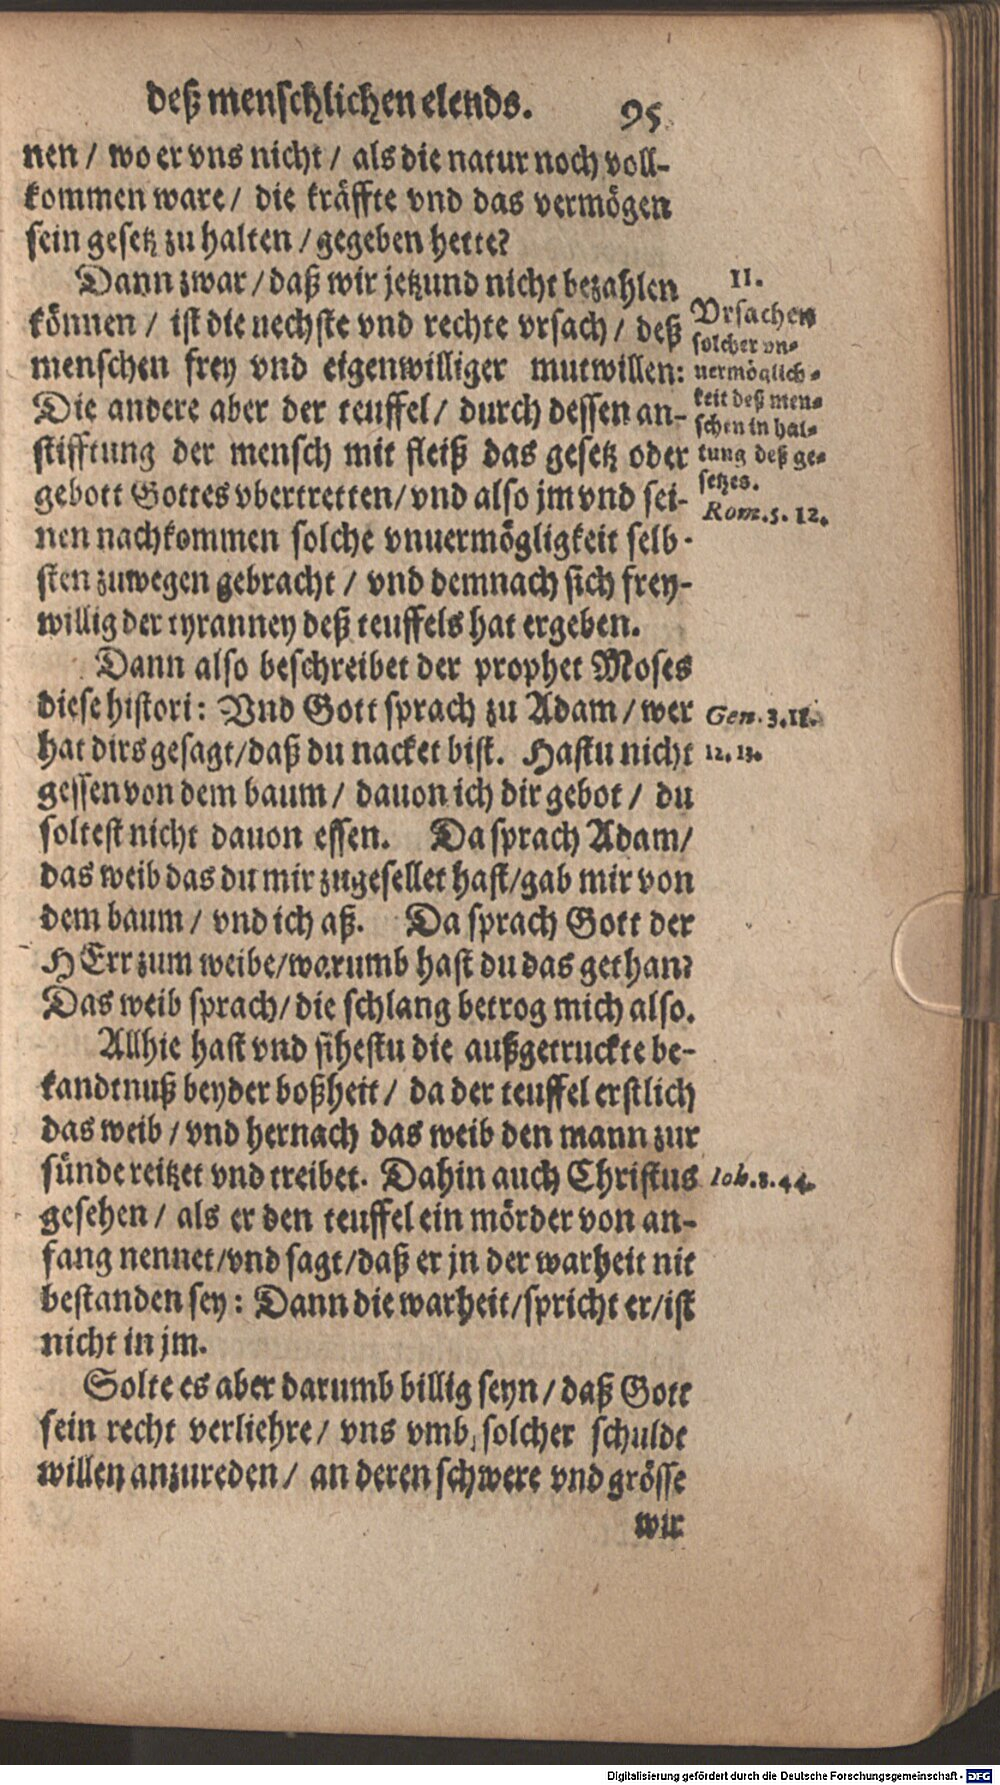 deß menschlichen elends. 95
nen / wo er vns nicht / als die natur noch voll-
kommen ware / die kräffte vnd das vermögen
sein gesetz zu halten / gegeben hette?
Dann zwar / daß wir jetzund nicht bezahlen
können / ist die nechste vnd rechte vrsach / deß
menschen frey vnd eigenwilliger mutwillen:
Die andere aber der teuffel / durch dessen an-
stifftung der mensch mit fleiß das gesetz oder
gebott Gottes vbertretten / vnd also jm vnd sei-
nen nachkommen solche vnuermögligkeit selb-
sten zuwegen gebracht / vnd demnach sich frey-
willig der tyranney deß teuffels hat ergeben.
II.
Vrsachen
solcher vn-
uermöglich-
keit deß men-
schen in hal-
tung deß ge-
setzes.
Rom. 5. 12.
Dann also beschreibet der prophet Moses
diese histori: Vnd Gott sprach zu Adam / wer
hat dirs gesagt / daß du nacket bist. Hastu nicht
gessen von dem baum / dauon ich dir gebot / du
soltest nicht dauon essen. Da sprach Adam /
das weib das du mir zugesellet hast / gab mir von
dem baum / vnd ich aß. Da sprach Gott der
HErr zum weibe / warumb hast du das gethan?
Das weib sprach / die schlang betrog mich also.
Gen. 3. 11.
12. 13.
Allhie hast vnd sihestu die außgetruckte be-
kandtnuß beyder boßheit / da der teuffel erstlich
das weib / vnd hernach das weib den mann zur
sünde reitzet vnd treibet. Dahin auch Christus
gesehen / als er den teuffel ein mörder von an-
fang nennet / vnd sagt / daß er jn der warheit nit
bestanden sey: Dann die warheit / spricht er / ist
nicht in jm.
Ioh. 8. 44.
Solte es aber darumb billig seyn / daß Gott
sein recht verliehre / vns vmb solcher schulde
willen anzureden / an deren schwere vnd grösse
wir
Digitalisierung gefördert durch die Deutsche Forschungsgemeinschaft - DFG